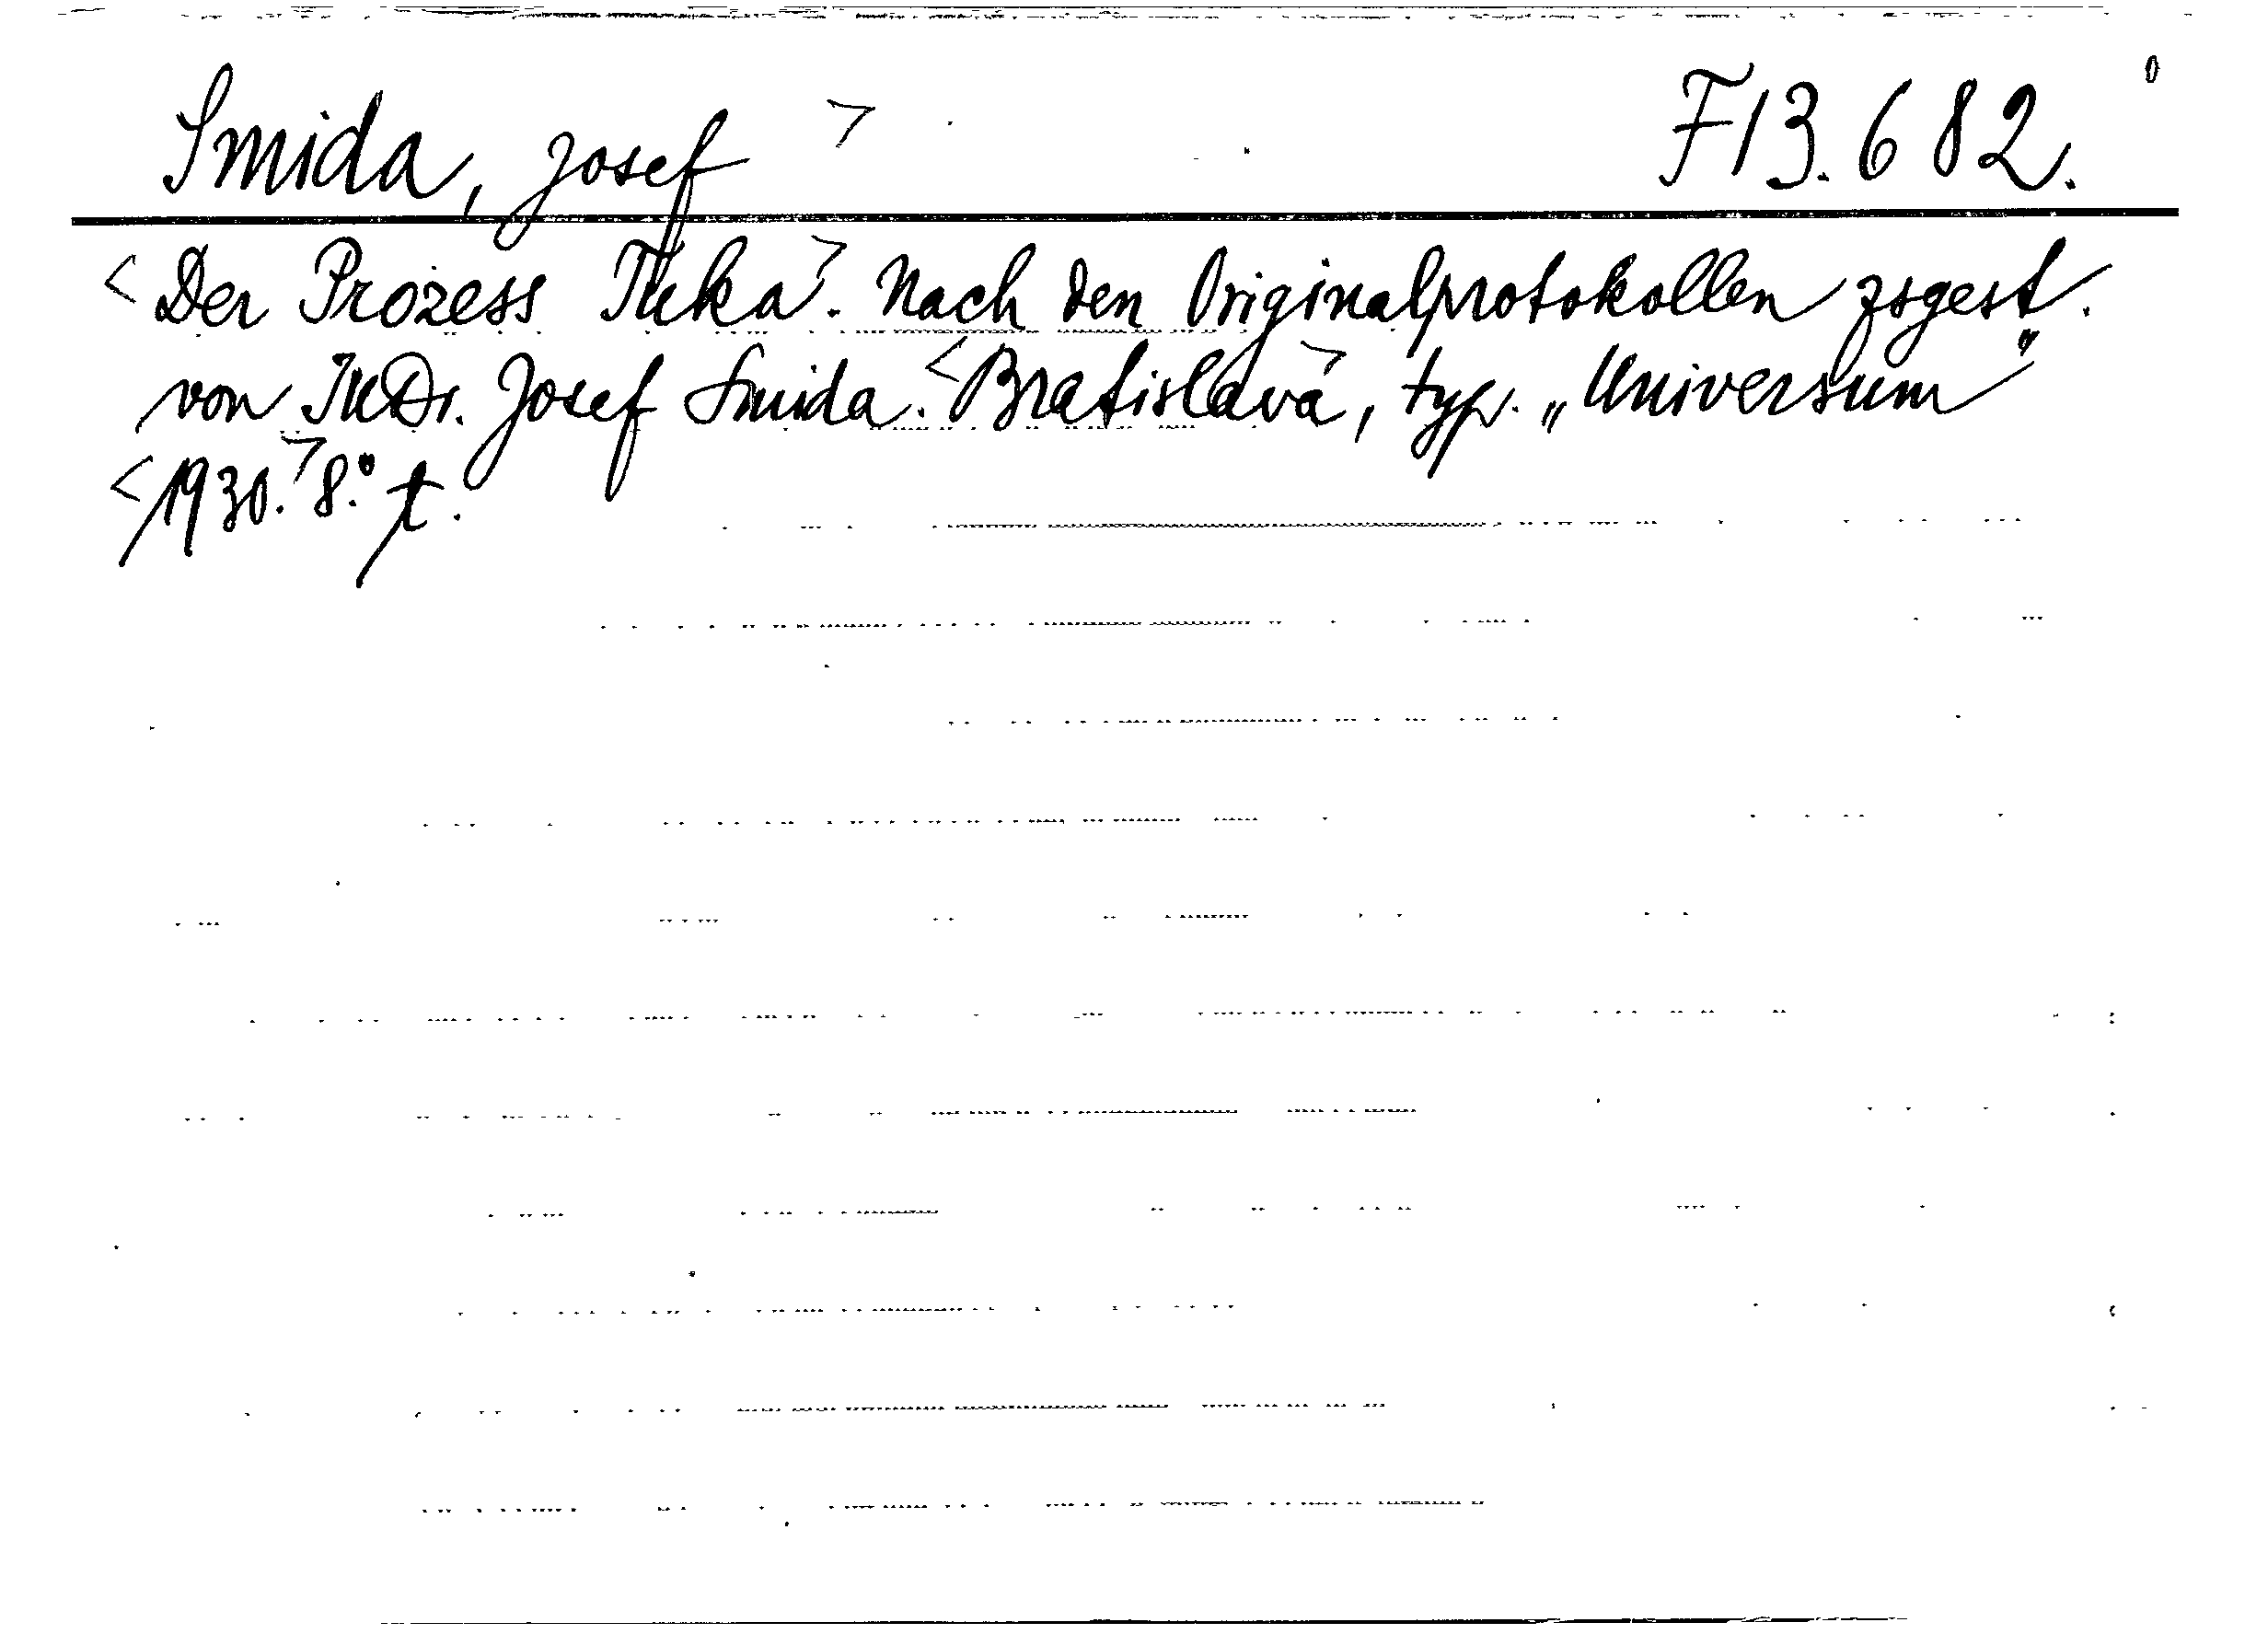 Smida, Josef > F13.682.
<Der Prozess Tuka>. Nach den Originalprotokollen zsgest.
von JUDr. Josef Smida. <Bratislava>, typ. „Universum"
<1930.> 8.° t.